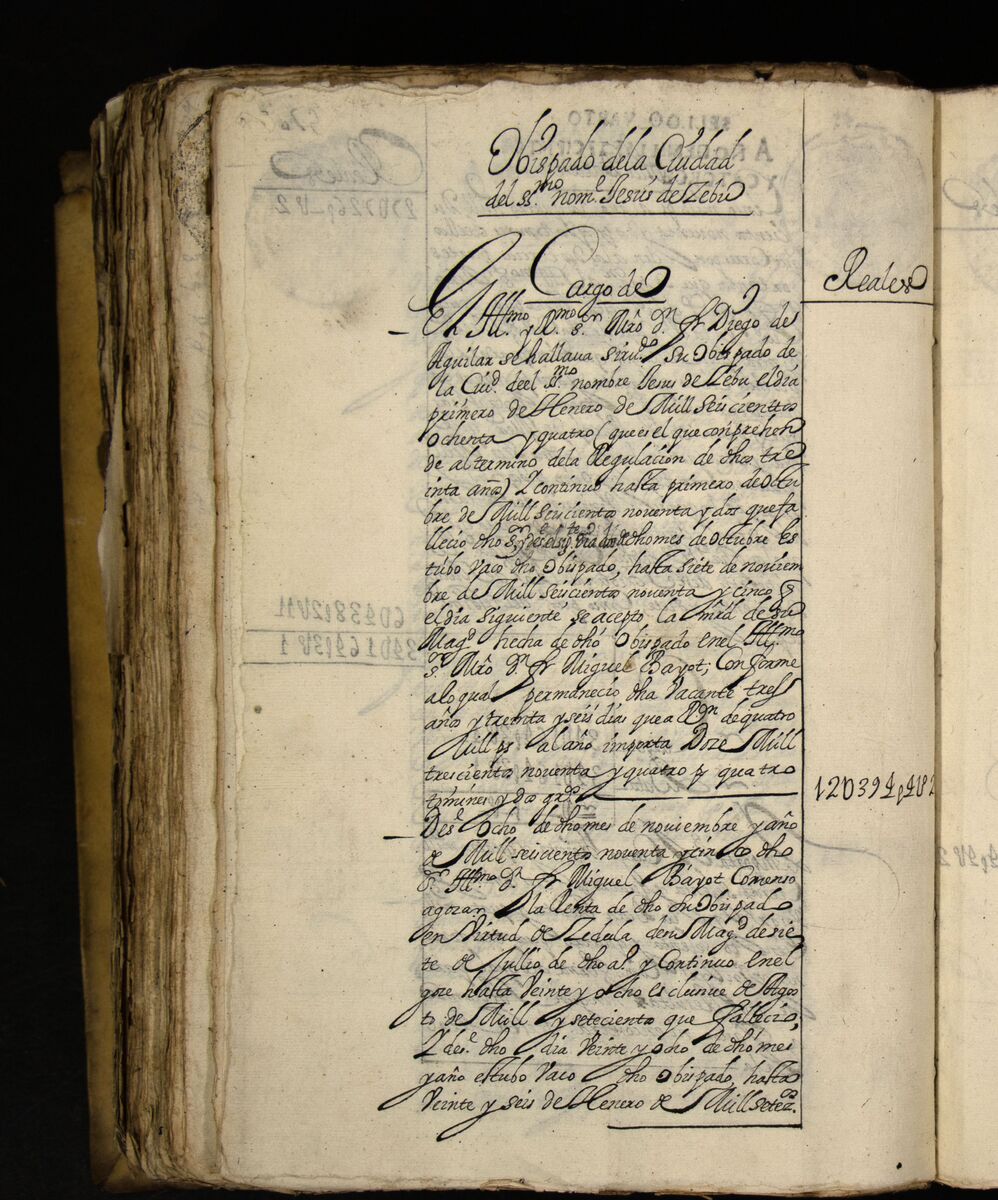 Obispado dela Ciudad
del ss.mo nom.e Jesus de Zebu
Cargo de
Reales
El Ill.mo y R.mo s.r Mro D.n fr Diego de
Aguilar se hallaua siru.do su Obispado de
la Ciu.d deel ss.mo nombre Jesus de Zebu el dia
primero de Henero de Mill seiscienttos
ochenta y quatro (que es el que comprehen
de al termino dela Regulacion de dhos tre
inta años) Y continuo hasta primero de octu
bre de Mill seiscientos noventa y dos que fa
llecio dho s.r y desde el sig.te dia dos de dho mes de octubre es
tubo vaco dho obispado, hasta siete de noviem
bre de Mill seiscientos noventa y cinco q
el dia siguiente se acepto la mrd de su
Mag.d hecha de dho obispado enel Ill.mo
s.or Mro D.n fr Miguel Bayot; Conforme
alo qual permanecio dha vacante tress
años y treinta y seis dias que a R.on de quatro
Mill ps al año importa Doze Mill
trescientos noventa y quatro ps quatro
tomines y dos gr.s
12U394p4U2
Des.e ocho de dho mes de noviembre y año
de Mill seiscientos noventa y cinco dho
s.r Ill.mo D.n fr Miguel Bayot Comenso
agozar la Renta de dho su Obispado
en Virtud de Zedula de su Mag.d de sie
te de Jullio de dho a.o y Continuo enel
goze hasta Veinte y ocho esclusiue de Agos
to de Mill y setecientos que fallecio;
Y des.e dho dia Veinte y ocho de dho mes
y año estubo Vaco dho obispado, hasta
Veinte y seis de Henero de Mill setez.os